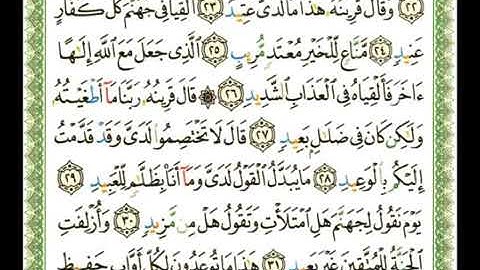 ﴿٢٢﴾ وَقَالَ قَرِينُهُۥ هَٰذَا مَا لَدَىَّ عَتِيدٌ ﴿٢٣﴾ أَلْقِيَا فِى جَهَنَّمَ كُلَّ كَفَّارٍ
عَنِيدٍ ﴿٢٤﴾ مَّنَّاعٍ لِّلْخَيْرِ مُعْتَدٍ مُّرِيبٍ ﴿٢٥﴾ ٱلَّذِى جَعَلَ مَعَ ٱللَّهِ إِلَٰهًا
ءَاخَرَ فَأَلْقِيَاهُ فِى ٱلْعَذَابِ ٱلشَّدِيدِ ﴿٢٦﴾ ۞ قَالَ قَرِينُهُۥ رَبَّنَا مَآ أَطْغَيْتُهُۥ
وَلَٰكِن كَانَ فِى ضَلَٰلٍۭ بَعِيدٍ ﴿٢٧﴾ قَالَ لَا تَخْتَصِمُوا۟ لَدَىَّ وَقَدْ قَدَّمْتُ
إِلَيْكُم بِٱلْوَعِيدِ ﴿٢٨﴾ مَا يُبَدَّلُ ٱلْقَوْلُ لَدَىَّ وَمَآ أَنَا۠ بِظَلَّٰمٍ لِّلْعَبِيدِ ﴿٢٩﴾
يَوْمَ نَقُولُ لِجَهَنَّمَ هَلِ ٱمْتَلَأْتِ وَتَقُولُ هَلْ مِن مَّزِيدٍ ﴿٣٠﴾ وَأُزْلِفَتِ
ٱلْجَنَّةُ لِلْمُتَّقِينَ غَيْرَ بَعِيدٍ ﴿٣١﴾ هَٰذَا مَا تُوعَدُونَ لِكُلِّ أَوَّابٍ حَفِيظٍ